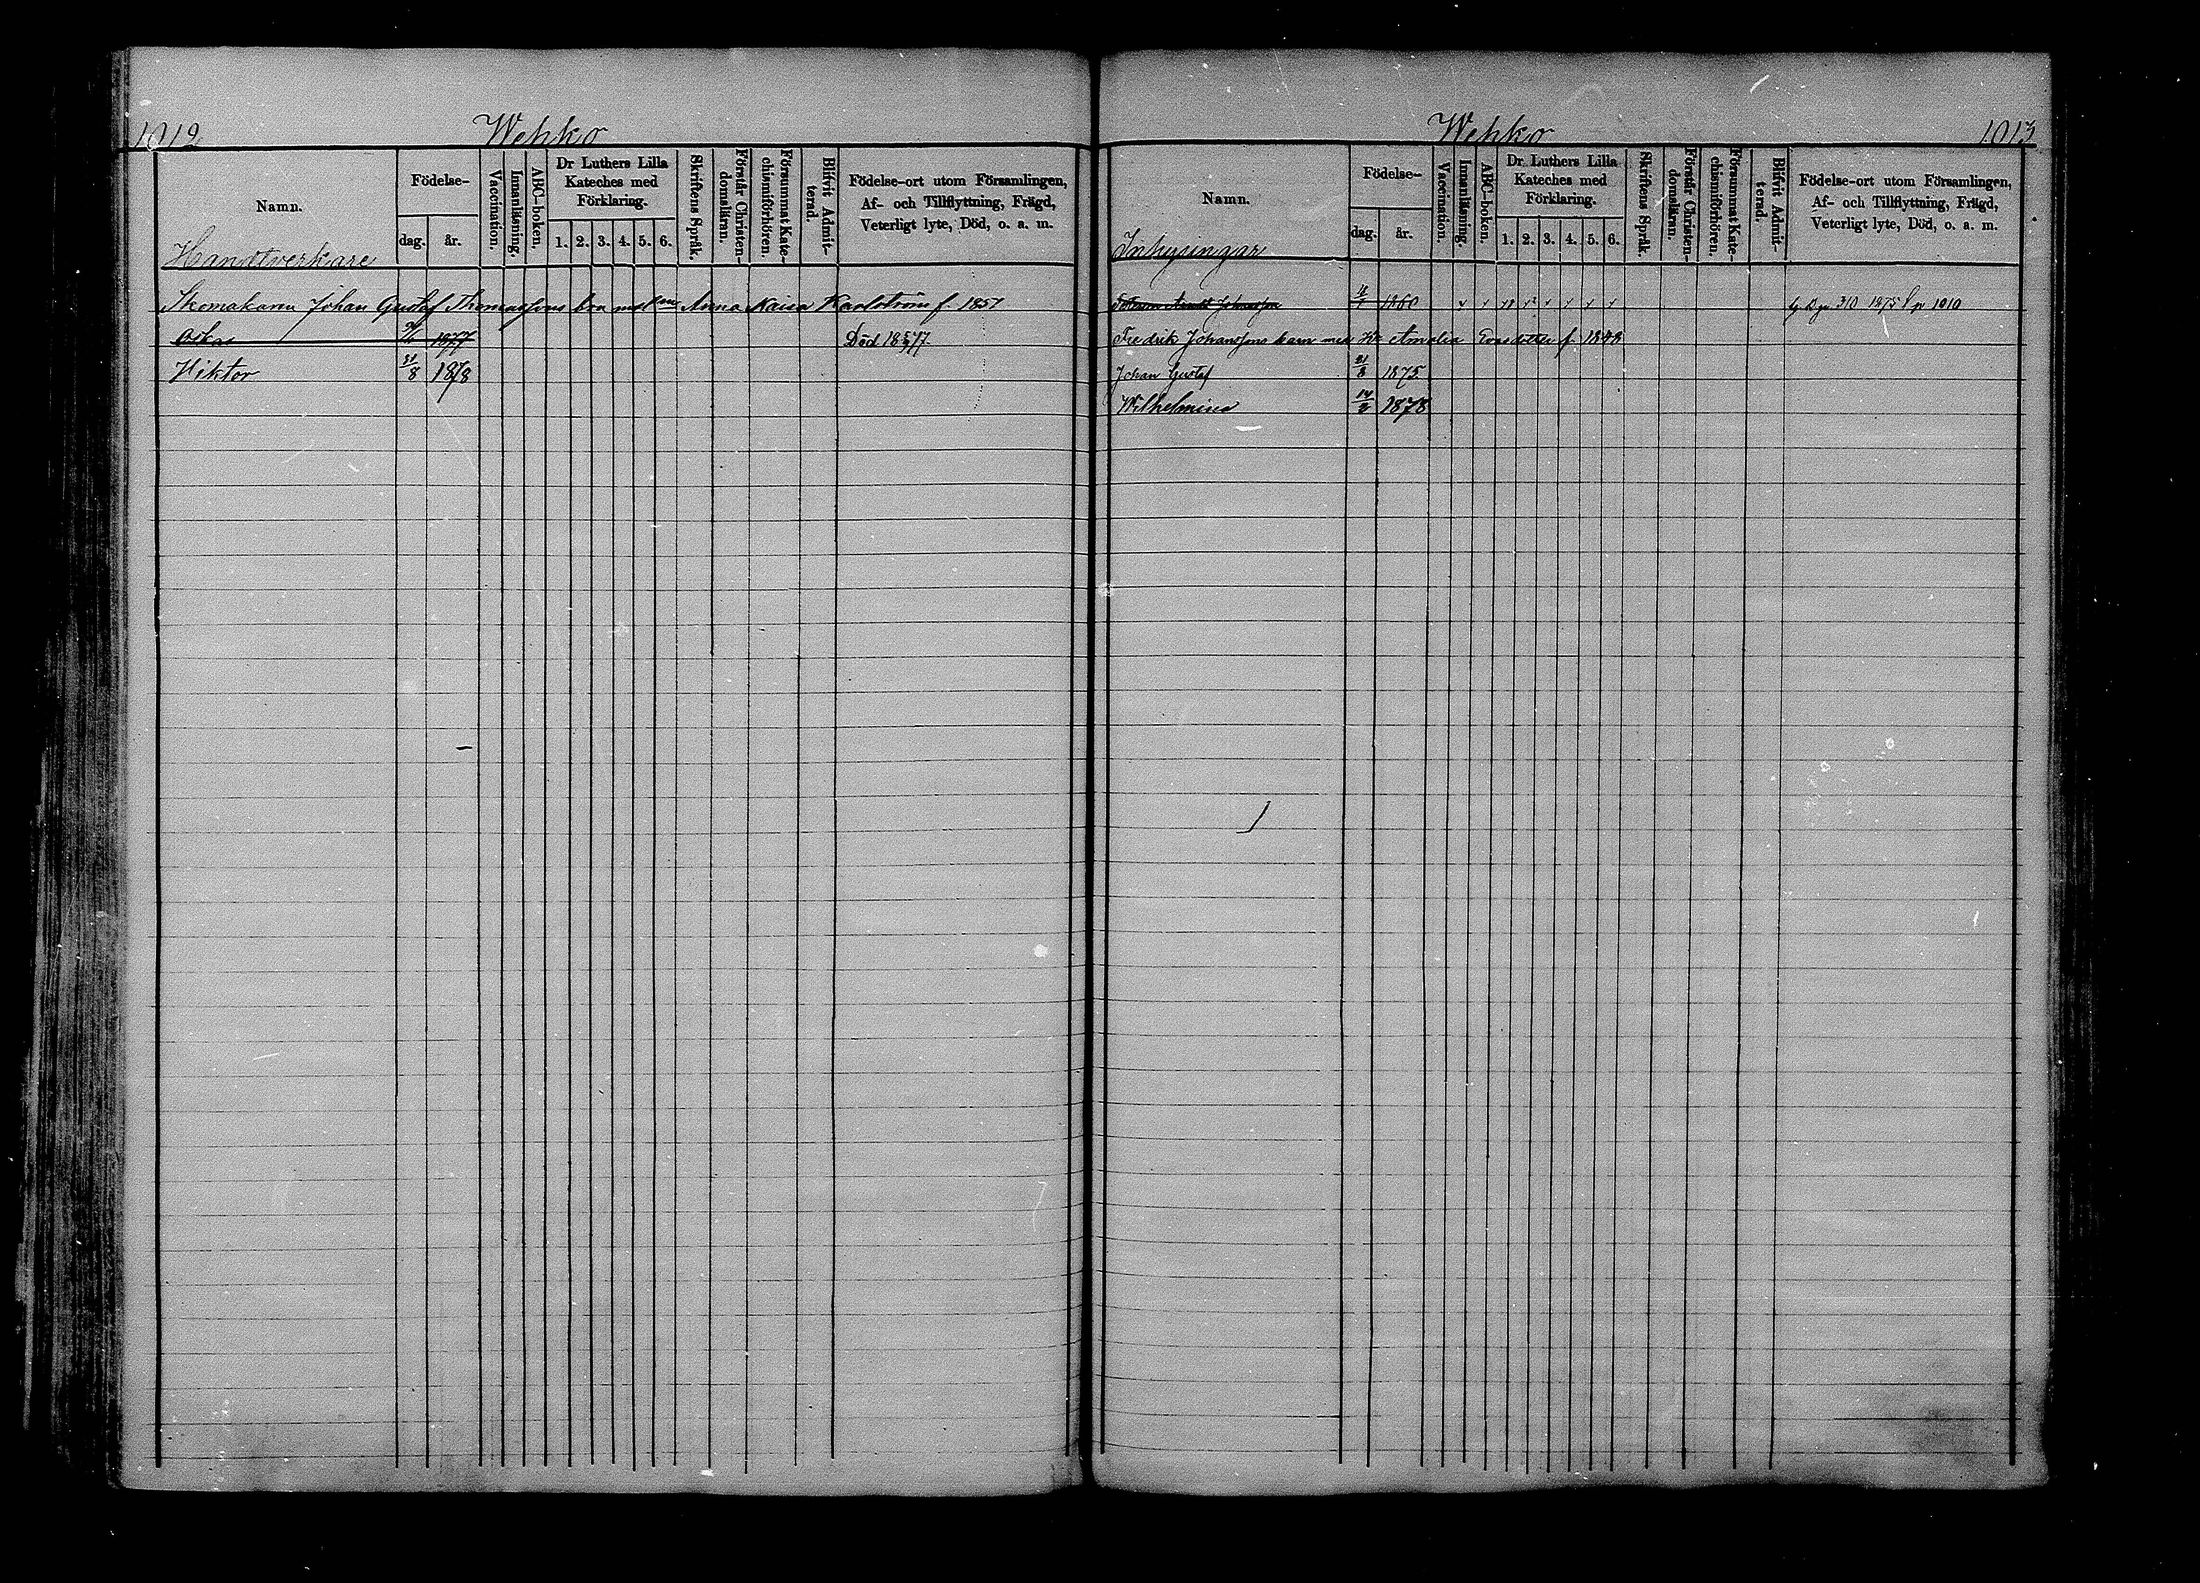 1012 Wehko
Namn.
Födelse-
dag. år.
Vaccination.
Innanläsning.
ABC-boken.
Dr Luthers Lilla
Kateches med
Förklaring.
1. 2. 3. 4. 5. 6.
Skriftens Språk.
Förstår Christen-
domsläran.
Försummat Kate-
chismiförhören.
Blifvit Admit-
terad.
Födelse-ort utom Församlingen,
Af- och Tillflyttning, Frägd,
Veterligt lyte, Död, o. a. m.
Handtverkare
Skomakaren Johan Gustaf Thomassons brn med Anna Kaisa Karlström f 1857
Oskar 1877 Död 18 77
Wiktor 31/8 1878
Wehko 1013
Namn.
Födelse-
dag. år.
Vaccination.
Innanläsning.
ABC-boken.
Dr Luthers Lilla
Kateches med
Förklaring.
1. 2. 3. 4. 5. 6.
Skriftens Språk.
Förstår Christen-
domsläran.
Försummat Kate-
chismiförhören.
Blifvit Admit-
terad.
Födelse-ort utom Församlingen,
Af- och Tillflyttning, Frägd,
Veterligt lyte, Död, o. a. m.
Inhysingar
Johansson 1860 310 1875 p 1010
Fredrik Johanssons barn med Amalia Evasdotter f 1848
Johan Gustaf 21/8 1875
Wilhelmina 14/2 1878